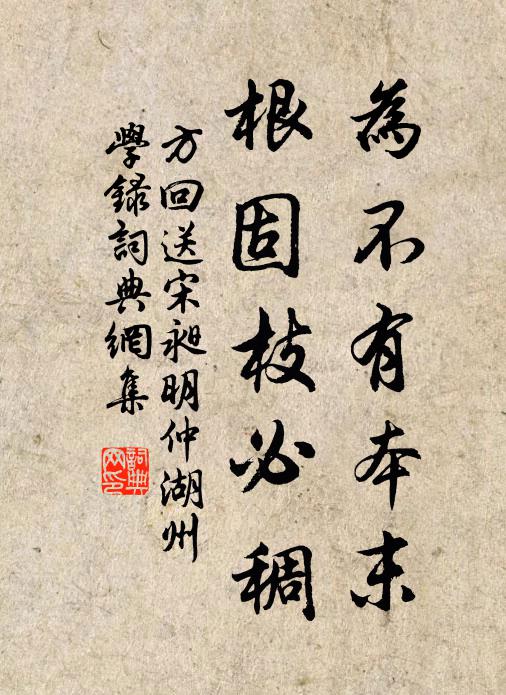 為不有本末
根固枝必稠
方回送宋昶明仲湖州
學錄詞典網集
詞典
网印